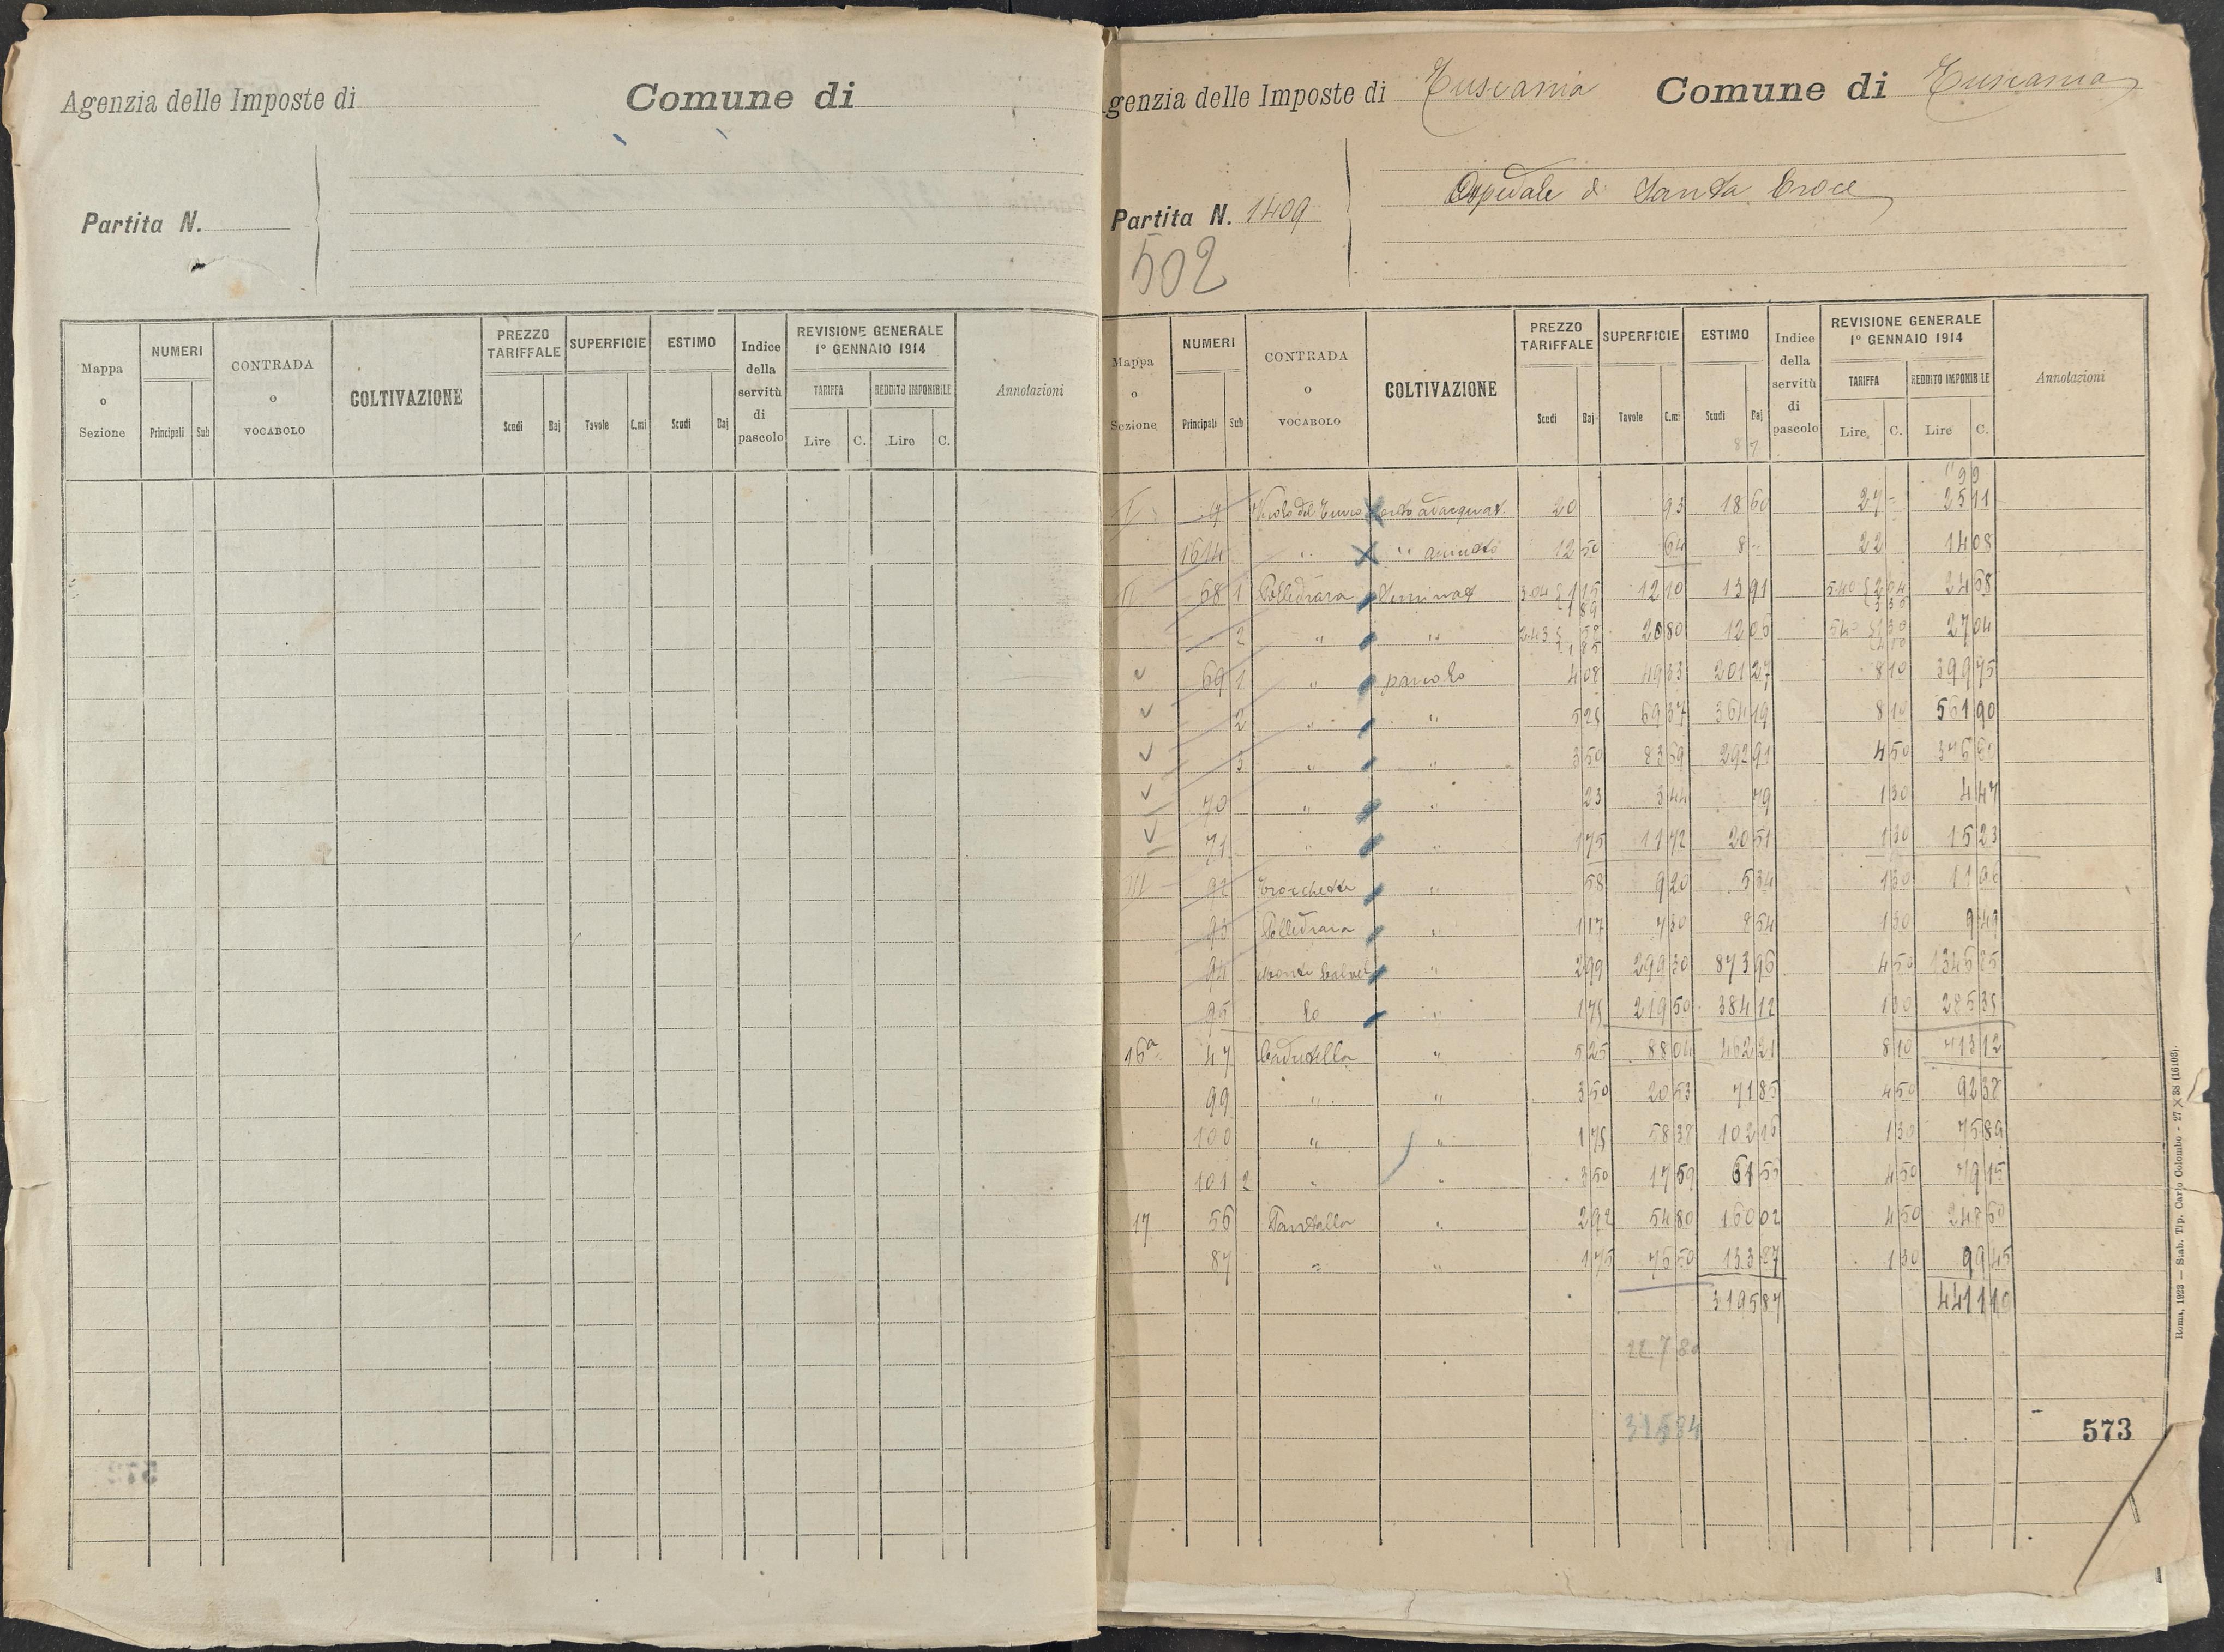 Agenzia delle Imposte di
Comune di
Partita N.
Mappa o Sezione
NUMERI
Principali
Sub
CONTRADA o VOCABOLO
COLTIVAZIONE
PREZZO TARIFFALE
Scudi
Baj
SUPERFICIE
Tavole
C.mi
ESTIMO
Scudi
Baj
Indice della servitù di pascolo
REVISIONE GENERALE
1° GENNAIO 1914
TARIFFA
REDDITO IMPONIBILE
Lire C. Lire C.
Annotazioni
genzia delle Imposte di Tuscania
Comune di Tuscania
Partita N. 1409
502
Ospedale di Santa Croce
Mappa o Sezione
NUMERI
Principali
Sub
CONTRADA o VOCABOLO
COLTIVAZIONE
PREZZO TARIFFALE
Scudi
Baj
SUPERFICIE
Tavole
C.mi
ESTIMO
Scudi
Baj
8 7
Indice della servitù di pascolo
REVISIONE GENERALE
1° GENNAIO 1914
TARIFFA
REDDITO IMPONIBILE
Lire C. Lire C.
Annotazioni
20 93 18 60 27 - 25 11
1614 " " 12 50 64 8 - 22 14 08
68 1 Polledrara 12 10 13 91 24 68
2 " " 20 80 12 05 27 04
69 1 " pascolo 4 08 49 33 201 27 8 10 399 95
2 " " 5 25 69 37 364 19 8 10 561 90
3 " " 3 50 83 69 292 91 4 50 376 60
70 " " 23 3 44 79 1 30 4 47
71 " " 1 75 11 72 20 51 1 30 15 23
92 " 58 9 20 5 34 1 30 11 96
93 Polledrara " 1 17 7 30 8 54 1 30 9 49
94 " 2 99 299 30 873 96 4 50 1346 85
95 " 1 75 219 50 384 12 1 30 285 35
16a 47 " 5 25 88 04 462 21 8 10 713 12
99 " " 3 50 20 53 71 85 4 50 92 38
100 " " 1 75 58 38 102 16 1 30 75 89
101 2 " " 3 50 17 59 61 56 4 50 79 15
17 56 " 2 92 54 80 160 02 4 50 248 60
87 " " 1 75 76 50 133 87 1 30 99 45
3195 87 4411 10
227 80
315 84
573
Roma, 1923 — Stab. Tip. Carlo Colombo - 27 × 38 (16103).